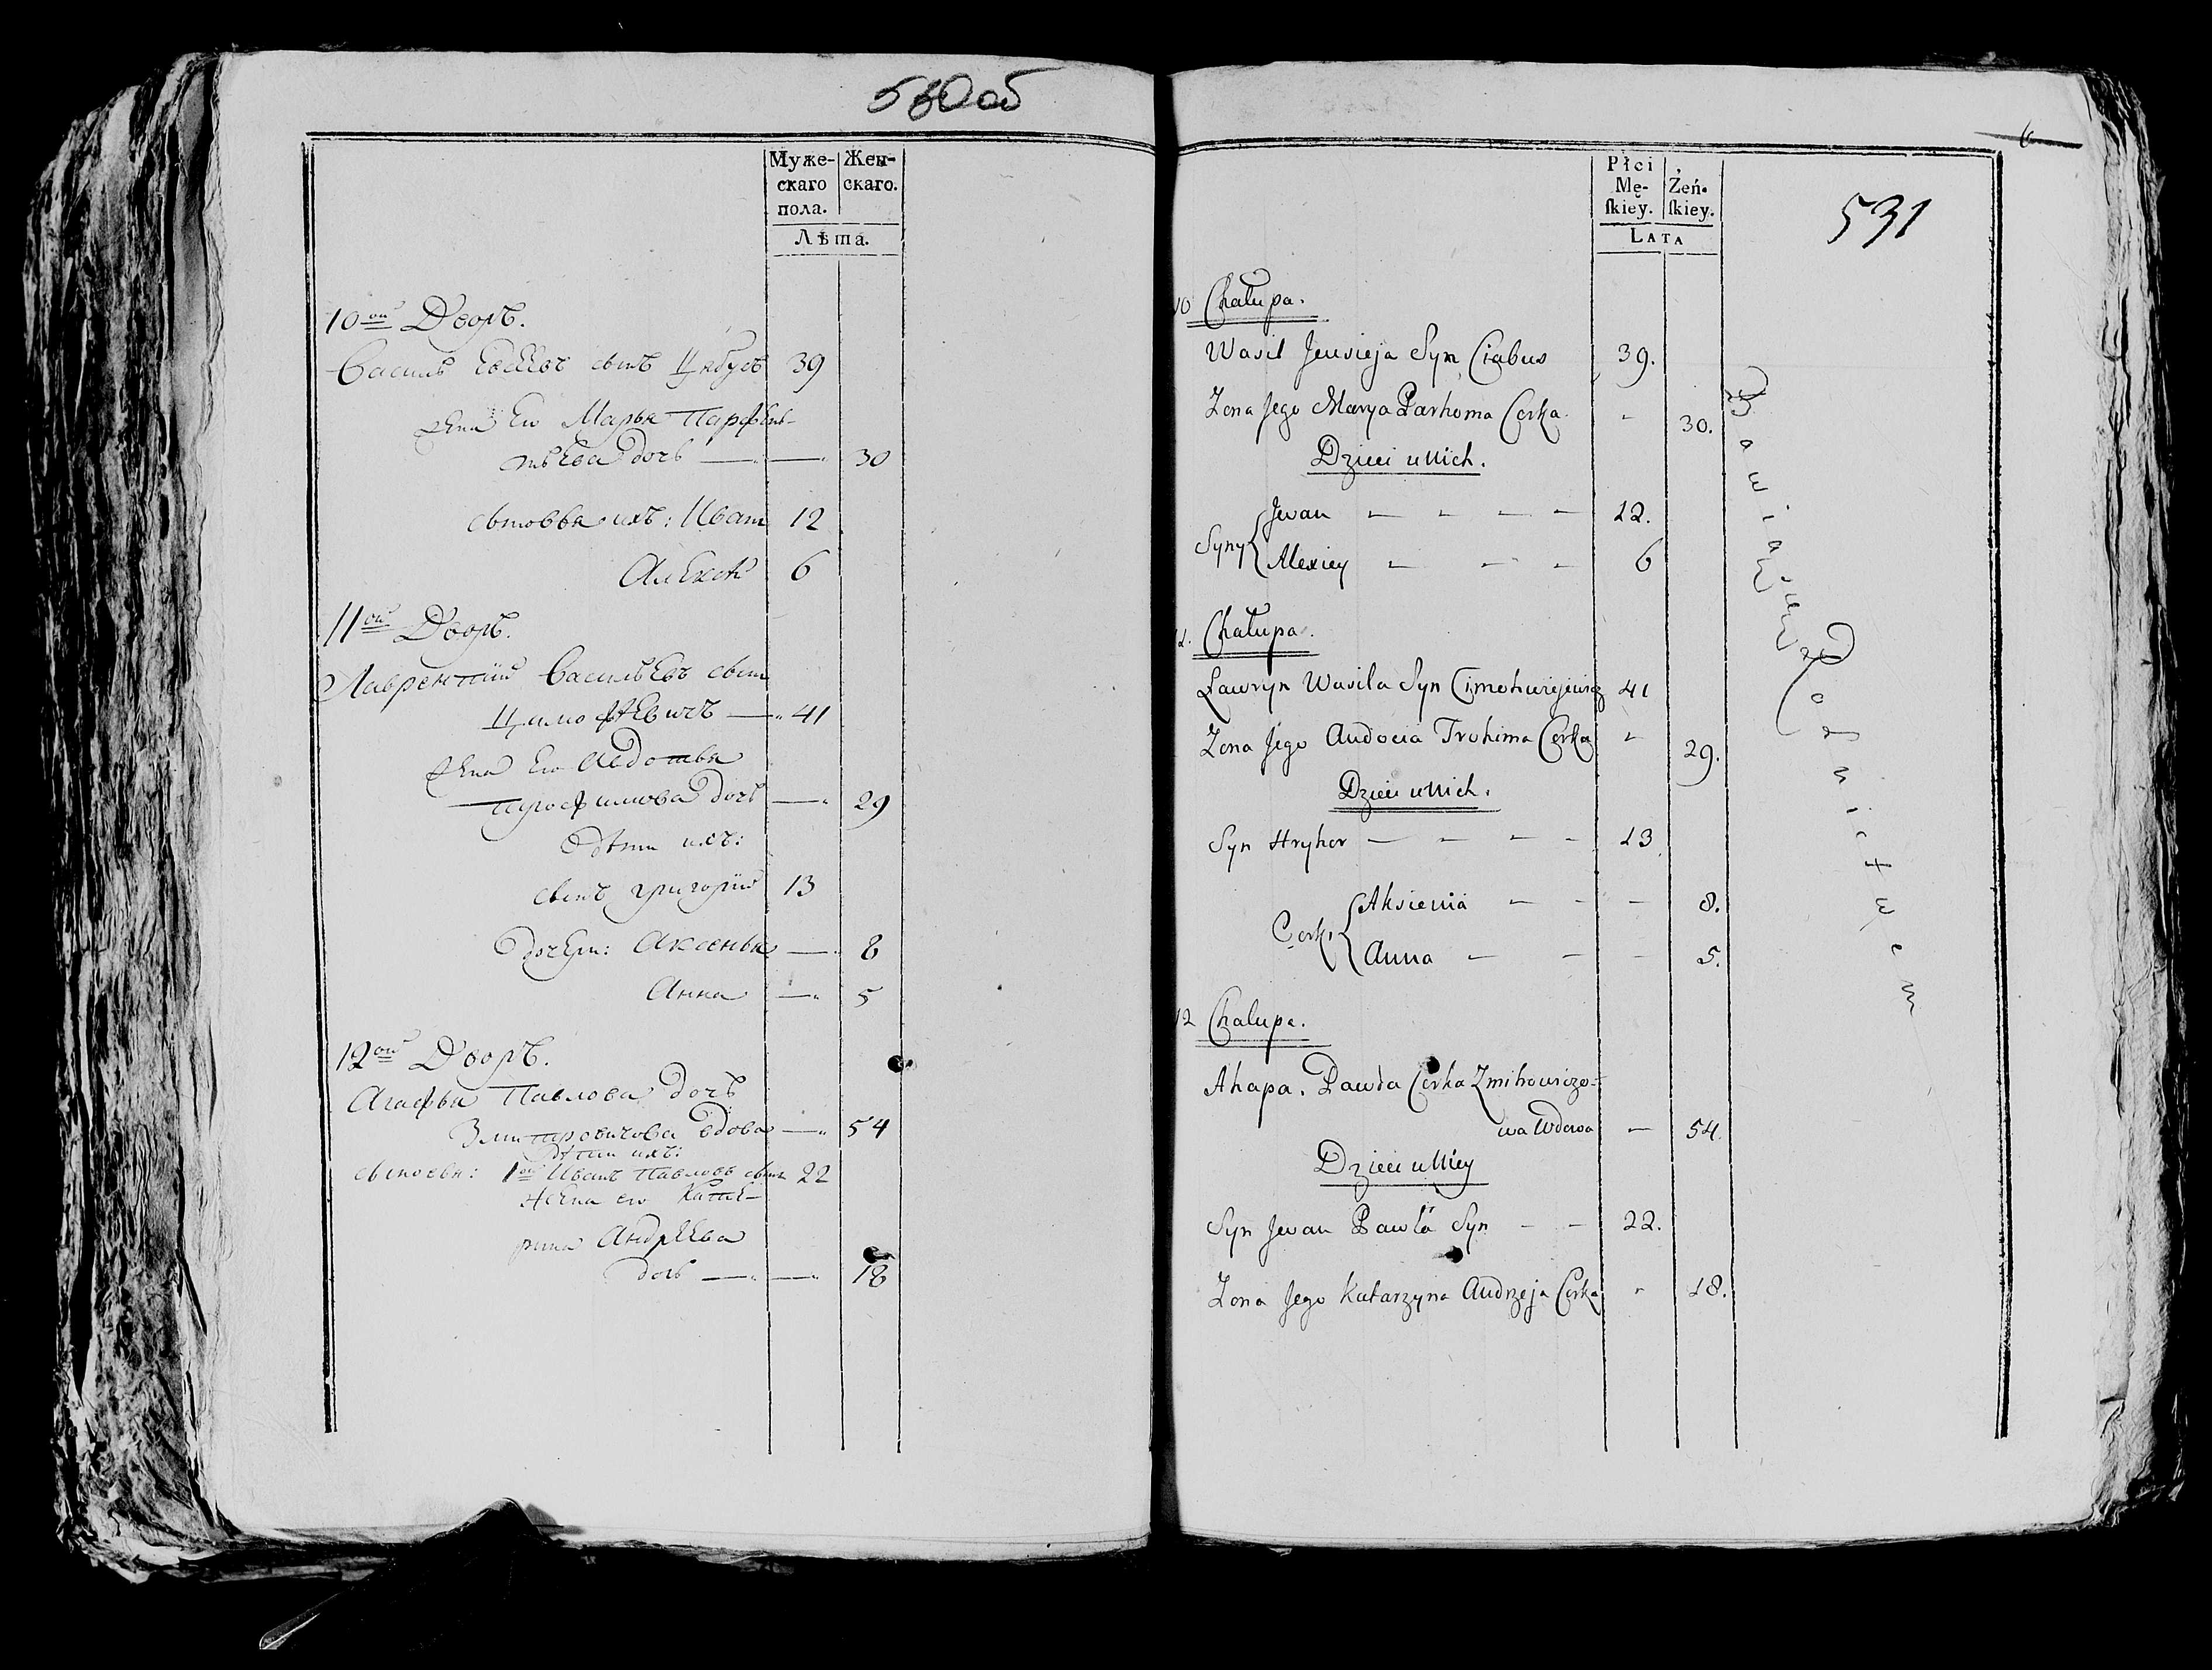 530 об
Муже-
скаго
пола.
Жен-
скаго.
Лѣта.
10ой Дворъ.
Василь Евсѣевъ сынъ Цябусъ 39
Жена Его Марья Парфень-
тьева дочь — — 30
сыновья ихъ: Иванъ 12
Алексѣй 6
11ой Дворъ.
Лаврентий Васильевъ сынъ
Цимофѣевичъ — 41
Жена Его Авдотья
Трофимова дочь — 29
Дѣти ихъ:
сынъ григорий 13
Дочери: Аксенья — 8
Анна — 5
12ой Дворъ.
Агафья Павлова дочь
Змитровичова вдова — 54
Дѣти ихъ:
сыновья: 1ой Иванъ Павловъ сынъ 22
Жена его Кате-
рина Андрѣева
дочь — — 18
6
531
Płci
Mę-
ſkiey.
Żeń-
ſkiey.
LATA
10 Chałupa.
Wasil Jewsieja Syn Ciabus 39.
Zona Jego Marya Parhoma Corka - 30.
Dzieci u Nich.
Syny { Jwan - - - - 12.
Alexiey - - - 6
11. Chałupa.
Ławryn Wasila Syn Cimohwiejewicz 41
Zona Jego Audocia Trohima Corka - 29.
Dzieci u Nich.
Syn Hryhor - - - - 13
Corki { Aksienia - - - 8.
Anna - - - 5.
12 Chałupa.
Ahapa. Pawła Corka Zmitrowiczo-
wa Wdowa - 54.
Dzieci u Niey
Syn Jwan Pawła Syn - - 22.
Zona Jego Katarzyna Andrzeja Corka - 18.